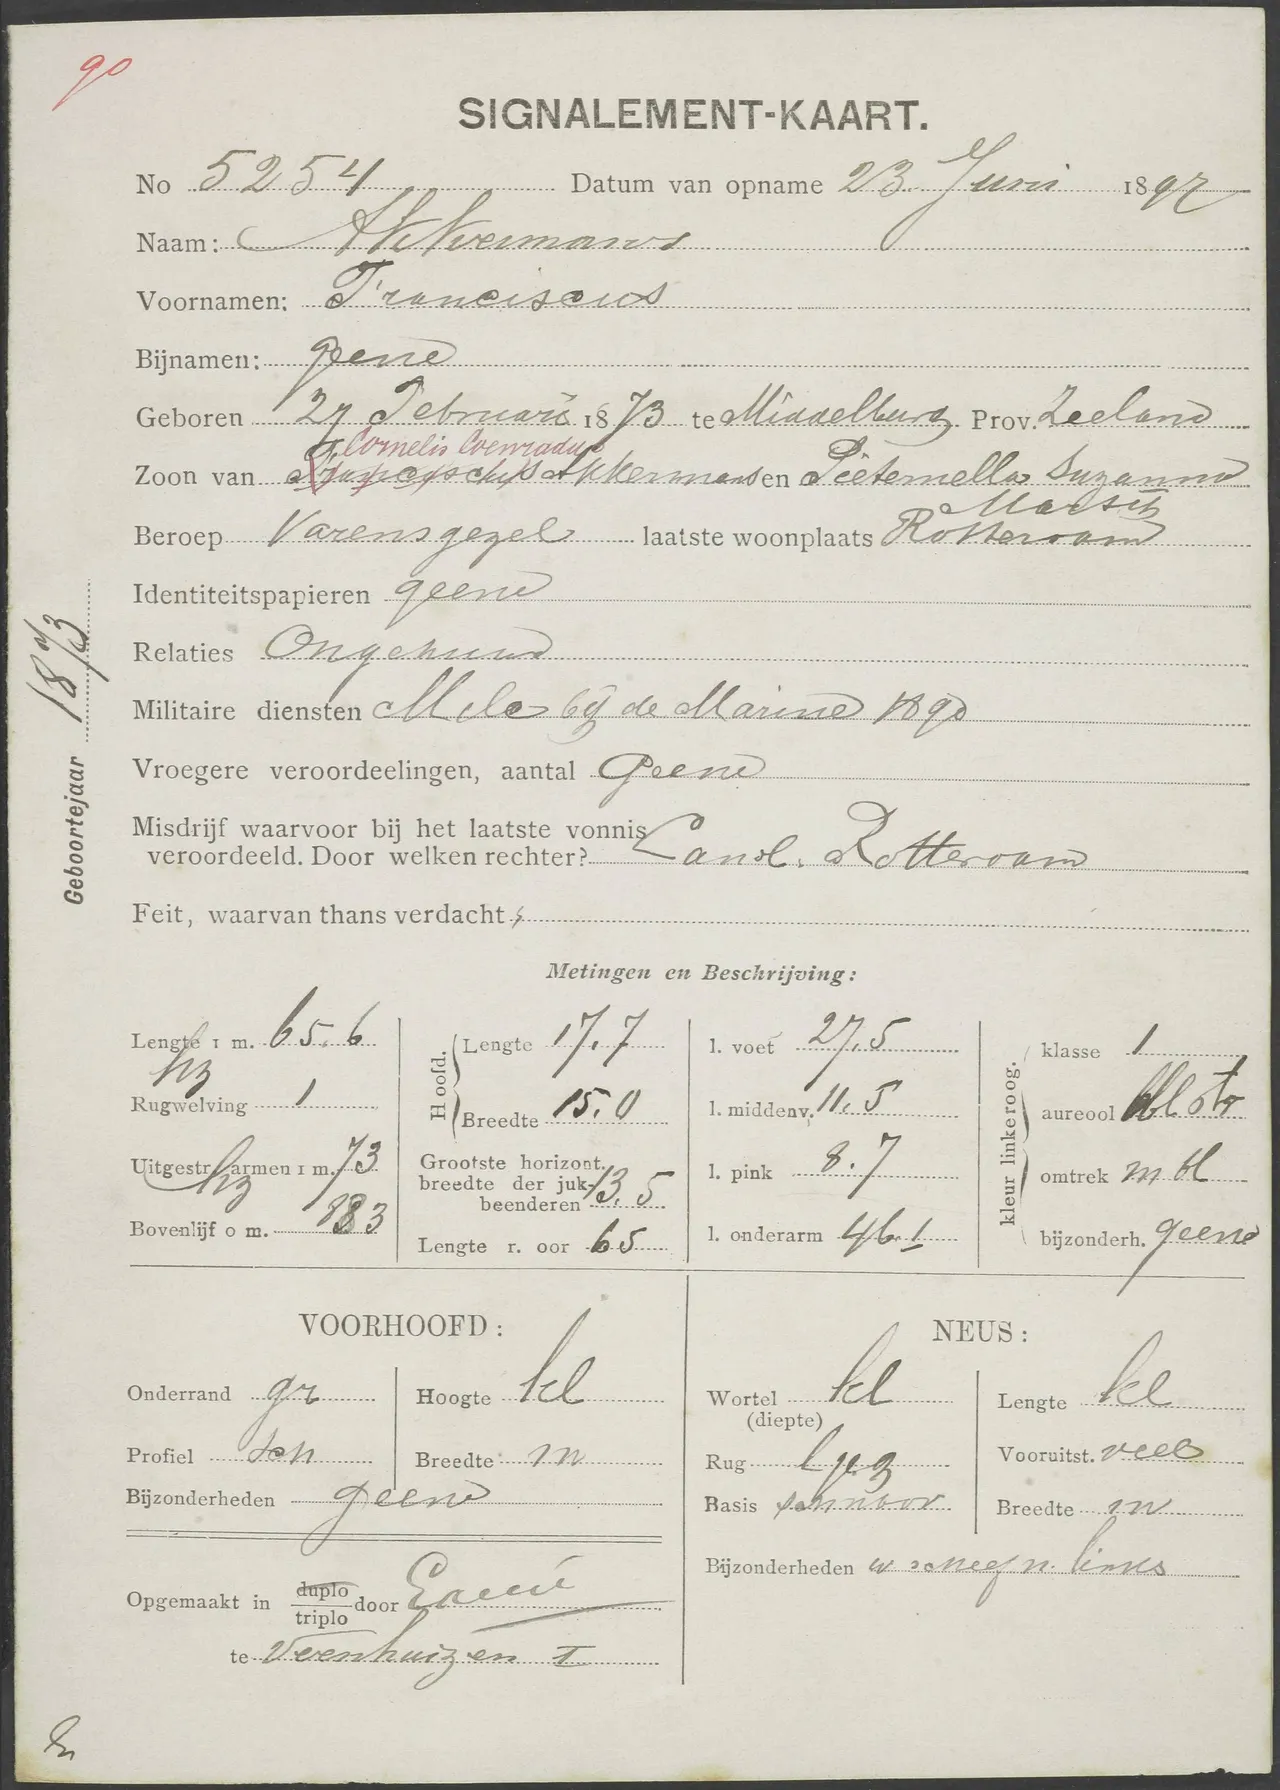 90
SIGNALEMENT-KAART.
No 5254 Datum van opname 23 Juni 1897
Naam: Akkermans
Voornamen: Franciscus
Bijnamen: geene
Geboren 27 Februari 1873 te Middelburg Prov. Zeeland
Cornelis Coenradus
Zoon van Franciscus Akkermans en Pieternella Suzanna
Beroep Varensgezel laatste woonplaats Rotterdam
Identiteitspapieren geene
Relaties Ongehuwd
Militaire diensten bij de Marine 1890
Vroegere veroordeelingen, aantal Geene
Misdrijf waarvoor bij het laatste vonnis
veroordeeld. Door welken rechter? Landl. Rotterdam
Feit, waarvan thans verdacht
Geboortejaar 1873
Metingen en Beschrijving:
Lengte 1 m. 65.6
Rugwelving 1
Uitgestr. armen 1 m. 73
Bovenlijf 0 m. 883
Hoofd.
Lengte 17.7
Breedte 15.0
Grootste horizont.
breedte der juk-
beenderen 13.5
Lengte r. oor 65
l. voet 27.5
l. middenv. 11.5
l. pink 8.7
l. onderarm 46.1
kleur linkeroog.
klasse 1
aureool
omtrek m bl
bijzonderh. geene
VOORHOOFD:
Onderrand gr
Profiel sch
Hoogte kl
Breedte m
Bijzonderheden geene
Opgemaakt in duplo
triplo door
te Veenhuizen I
NEUS:
Wortel kl
(diepte)
Rug
Basis
Lengte kl
Vooruitst. veel
Breedte m
Bijzonderheden w scheef n. links